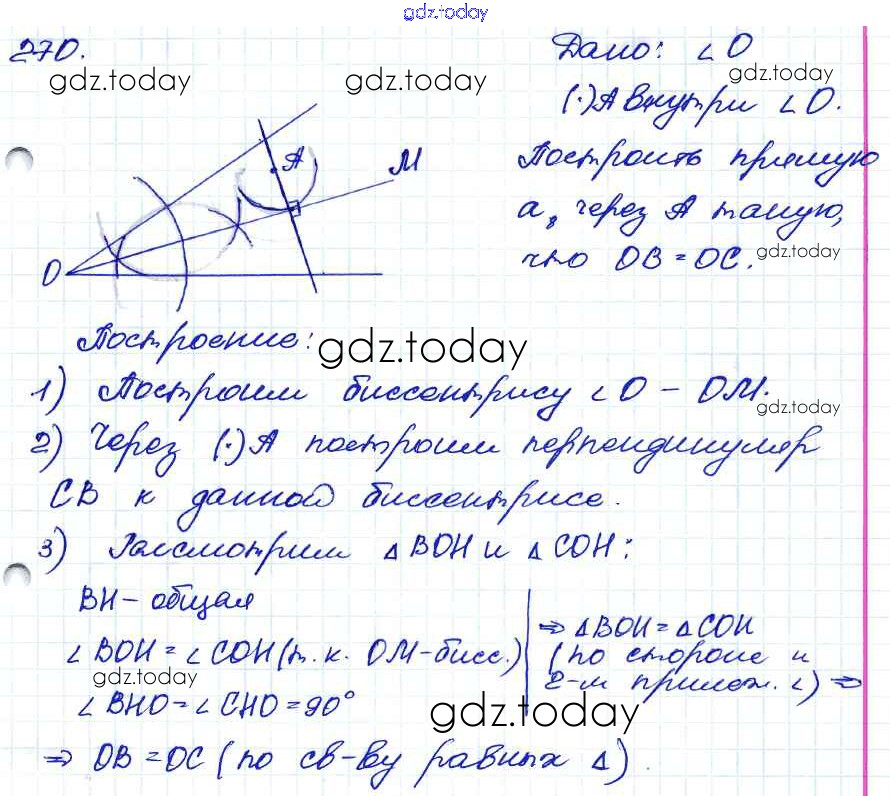 gdz.today
270.
Дано: ∠O
gdz.today
gdz.today
gdz.today
(·)A внутри ∠O.
A
M
O
Построить прямую
a, через A такую,
что OB = OC.
gdz.today
Построение:
gdz.today
1) Построим биссектрису ∠O – OM.
gdz.today
2) Через (·)A построим перпендикуляр
CB к данной биссектрисе.
3) Рассмотрим ΔBOH и ΔCOH:
BH – общая
∠BOH = ∠COH (т.к. OM – бисс.)
gdz.today
∠BHO = ∠CHO = 90°
⇒ ΔBOH = ΔCOH
(по стороне и
2-м прилеж. ∠) ⇒
gdz.today
⇒ OB = OC (по св-ву равных Δ).